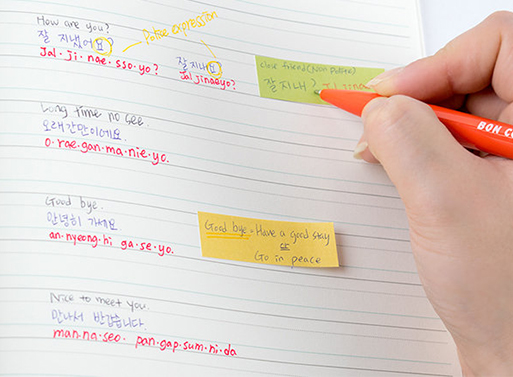 How are you?
잘 지냈어요?
Jal·ji·nae·sso·yo?
Polite expression
잘 지내요?
Jal jinaeyo?
close friend (Non polite)
잘 지내?
Jal jinae
Long time no see.
오래간만이에요.
o·rae·gan·ma·nie·yo.
Good bye.
안녕히 가세요
an·nyeong·hi ga·se·yo.
Good bye = Have a good stay
or
Go in peace
Nice to meet you.
만나서 반갑습니다.
man·na·seo· pan·gap·sum·ni·da
BON